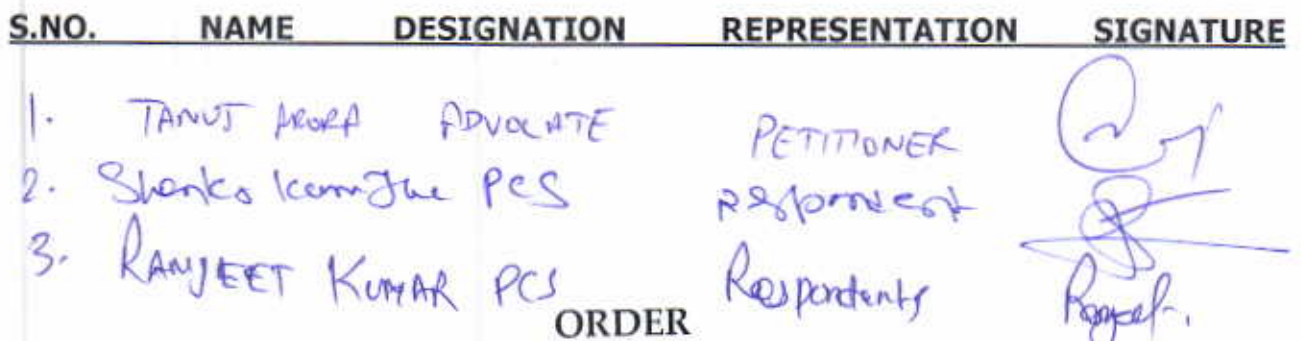 S.NO. NAME DESIGNATION REPRESENTATION SIGNATURE
1. TANUJ ARORA ADVOCATE PETITIONER
2. PCS Respondent
3. RANJEET KUMAR PCS Respondents
ORDER